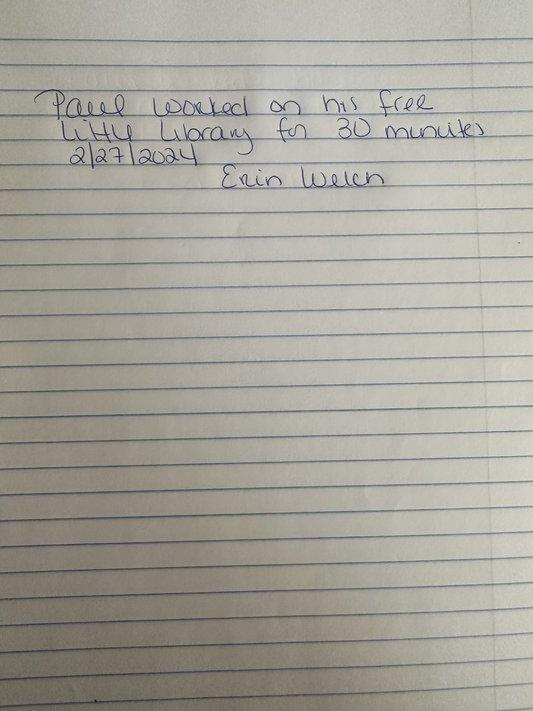 Paul worked on his free
little library for 30 minutes
2/27/2024
Erin Welch